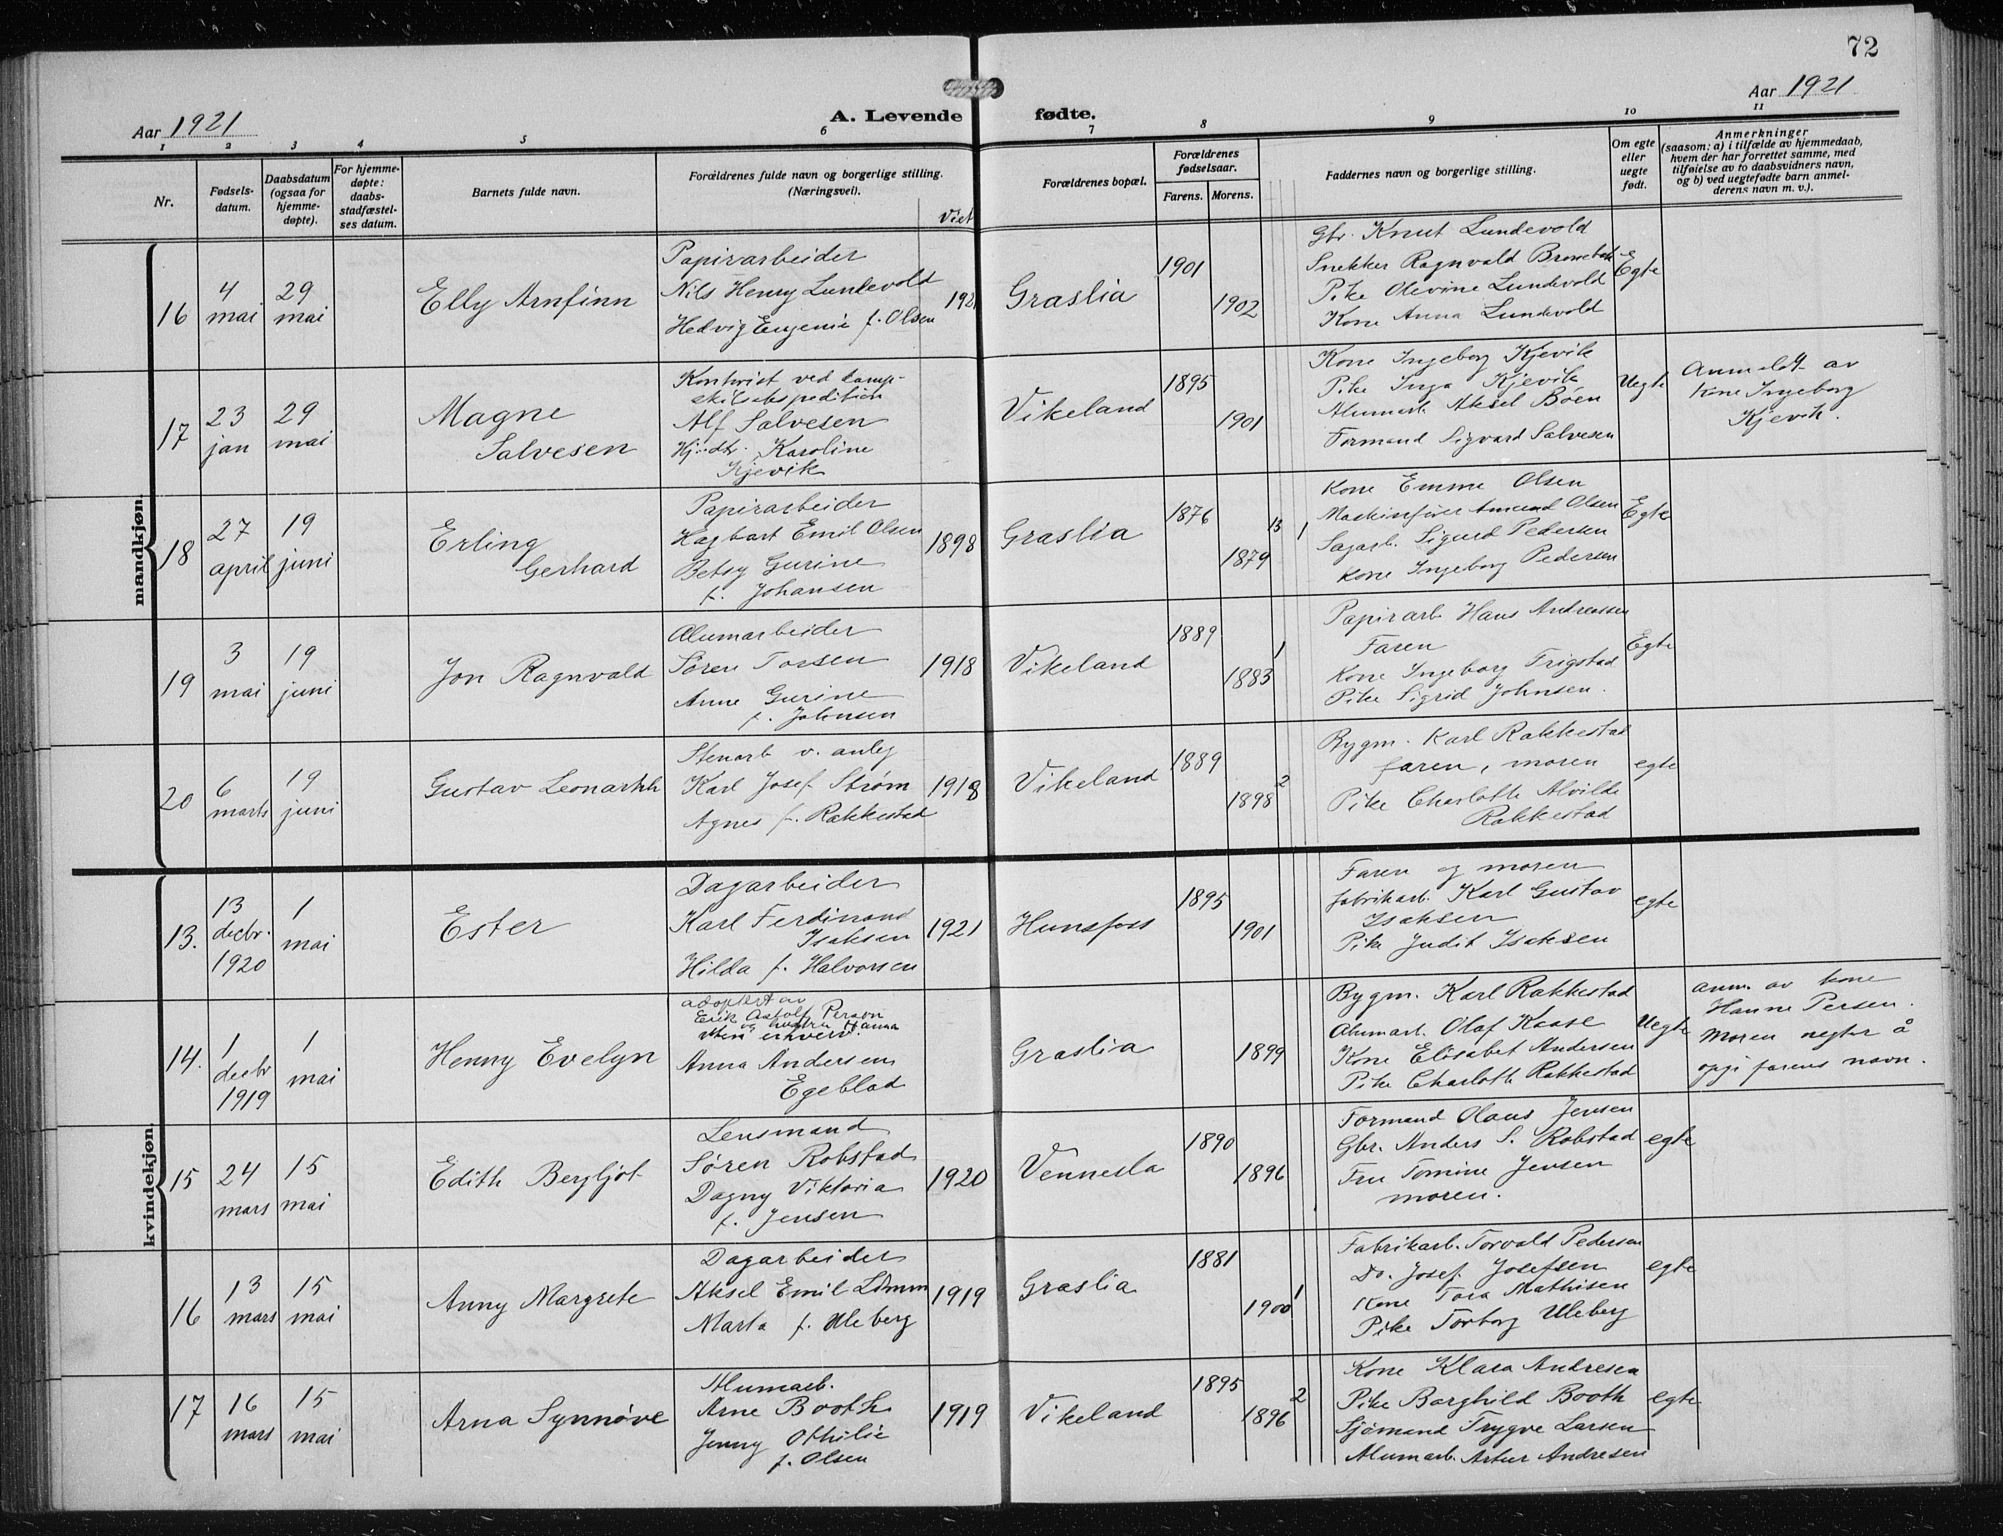 72
Aar 1921 A. Levende fødte. Aar 1921
1 2 3 4 5 6 7 8 9 10 11
Nr.
Fødsels-
datum.
Daabsdatum
(ogsaa for
hjemme-
døpte).
For hjemme-
døpte:
daabs-
stadfæstel-
ses datum.
Barnets fulde navn.
Forældrenes fulde navn og borgerlige stilling.
(Næringsvei).
Viet
Forældrenes bopæl.
Forældrenes
fødselsaar.
Farens. Morens.
Faddernes navn og borgerlige stilling.
Om egte
eller
uegte
født.
Anmerkninger
(saasom: a) i tilfælde av hjemmedaab,
hvem der har forrettet samme, med
tilføielse av to daabsvidners navn,
og b) ved uegtefødte barn anmel-
derens navn m. v.).
mandkjøn.
16
4
mai
29
mai
Elly Arnfinn
Papirarbeider
Nils Henry Lundevold
Hedvig Eugenie f. Olsen
1921
Graslia
1901
1902
Gbr. Knut Lundevold
Snekker Ragnvald
Pike Olevine Lundevold
Kone Anna Lundevold
Egte
17
23
jan
29
mai
Magne
Salvesen
Kontorist ved damp-
skibsekspedition
Alf Salvesen
Karoline
Kjevik
Vikeland
1895
1901
Kone Ingeborg Kjevik
Pike Inga Kjevik
Alumarb. Aksel Boen
Formand Sigvard Salvesen
Uegte
Anmeldt av
Kone Ingeborg
Kjevik.
18
27
april
19
juni
Erling
Gerhard
Papirarbeider
Hagbart Emil Olsen
Betsy Gurine
f. Johansen
1898
Graslia
1876
1879
13
1
Kone Emme Olsen
Maskinfører Amund Olsen
Sagarb. Sigurd Pedersen
Kone Ingeborg Pedersen
Egte
19
3
mai
19
juni
Jon Ragnvald
Alumarbeider
Søren Torsen
Anne Gurine
f. Johnsen
1918
Vikeland
1889
1883
1
Papirarb Hans Andreassen
Faren
Kone Ingeborg Trigstad
Pike Sigrid Johnsen.
Egte
20
6
marts
19
juni
Gustav
Stenarb v. anleg
Karl Josef Strøm
Agnes f. Rakkestad
1918
Vikeland
1889
1898
2
Bygm. Karl Rakkestad
faren, moren
Pike Charlotte Alvilde
Rakkestad
egte
kvindekjøn.
13.
13
decbr.
1920
1
mai
Ester
Dagarbeider
Karl Ferdinand
Isaksen
Hilda f. Halvorsen
1921
Hunsfoss
1895
1901
Faren og moren
fabrikarb. Karl Gustav
Isaksen
Pike Judit Isaksen
egte
14.
1
decbr
1919
1
mai
Henny Evelyn
adoptert av
Erik Astolf Person
og hustru Hanna
uten erhverv.
Anna Andersen
Egeblad
Graslia
1899
Bygm. Karl Rakkestad
Alumarb. Olaf Kaase
Kone Elisabet Andersen
Pike Charlotte Rakkestad
Uegte
anm. av kone
Hanne Persen.
Moren negter å
opgi farens navn.
15
24
mars
15
mai
Edith Bergljot
Lensmand
Søren Robstad
Dagny Viktoria
f. Jensen
1920
Vennesla
1890
1896
Formand Olaus Jensen
Gbr. Anders S. Robstad
Fru Tomine Jensen
moren.
egte
16
13
mars
15
mai
Anny Margrete
Dagarbeider
Aksel Emil
Marta f. Uleberg
1919
Graslia
1881
1900
1
Fabrikarb. Torvald Pedersen
Do. Josef Josefsen
Kone Tora Mathisen
Pike Torborg Uleberg
egte
17
16
mars
15
mai
Arna Synnøve
Alumarb.
Arne Booth
Jenny Othilie
f. Olsen
1919
Vikeland
1895
1896
2
Kone Klara Andresen
Pike Borghild Booth
Sjømand Trygve Larsen
Alumarb. Artur Andresen
egte